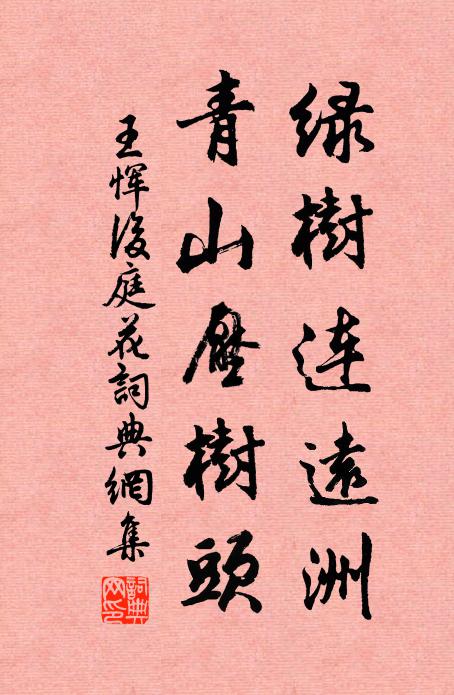 绿樹连遠洲
青山壓樹頭
王惲後庭花詞典網集
詞典網印